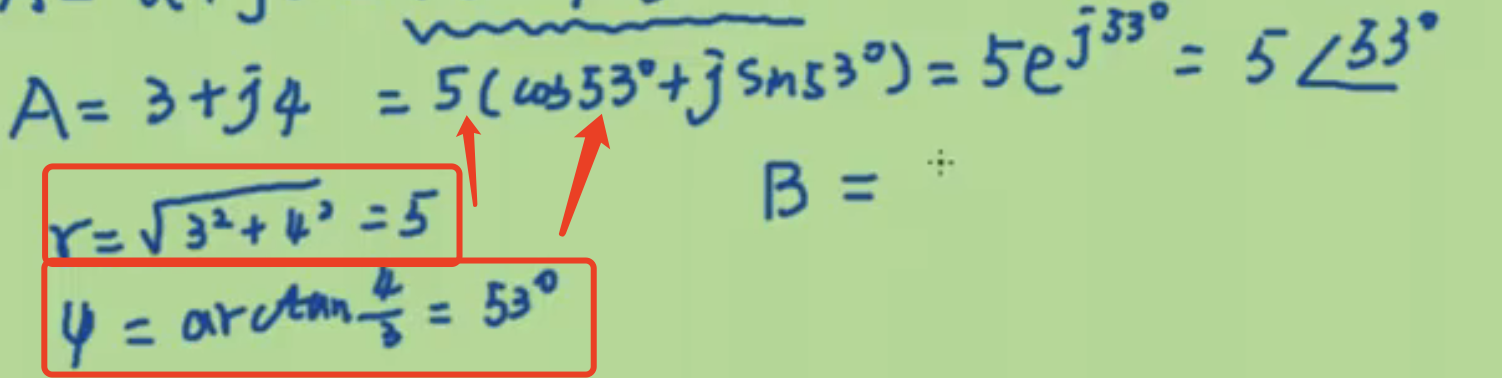 A = 3 + j4 = 5 (cos53° + j sin53°) = 5e^{j53°} = 5 ∠53°
B =
r = √(3² + 4²) = 5
ψ = arctan 4/3 = 53°